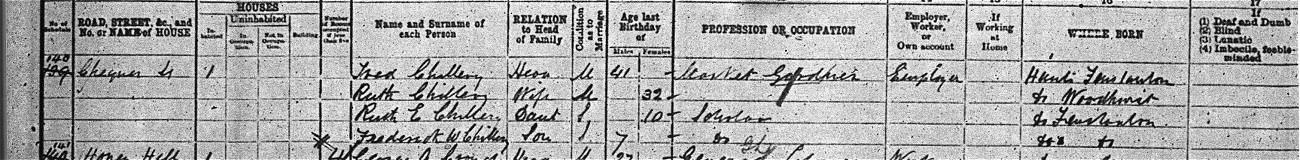 14 15 16 17
No. of Schedule ROAD, STREET, &c., and No. or NAME of HOUSE HOUSES Inhabited Uninhabited In Occupation. Not in Occupation. Building. Number of Rooms occupied if less than five Name and Surname of each Person RELATION to Head of Family Condition as to Marriage Age last Birthday of Males Females PROFESSION OR OCCUPATION Employer, Worker, or Own account If Working at Home WHERE BORN If (1) Deaf and Dumb (2) Blind (3) Lunatic (4) Imbecile, feeble-minded
140 139 Chequer St 1 Fred Chillery Head M 41 Market Gardner Employer Hunts Fenstanton
Ruth Chillery Wife M 32 do Woodhurst
Ruth E Chillery Daut S 10 Scholar do Fenstanton
Frederick W Chillery Son S 7 do do do
141 140 Honey Hill 1 4 George Head M 27 General